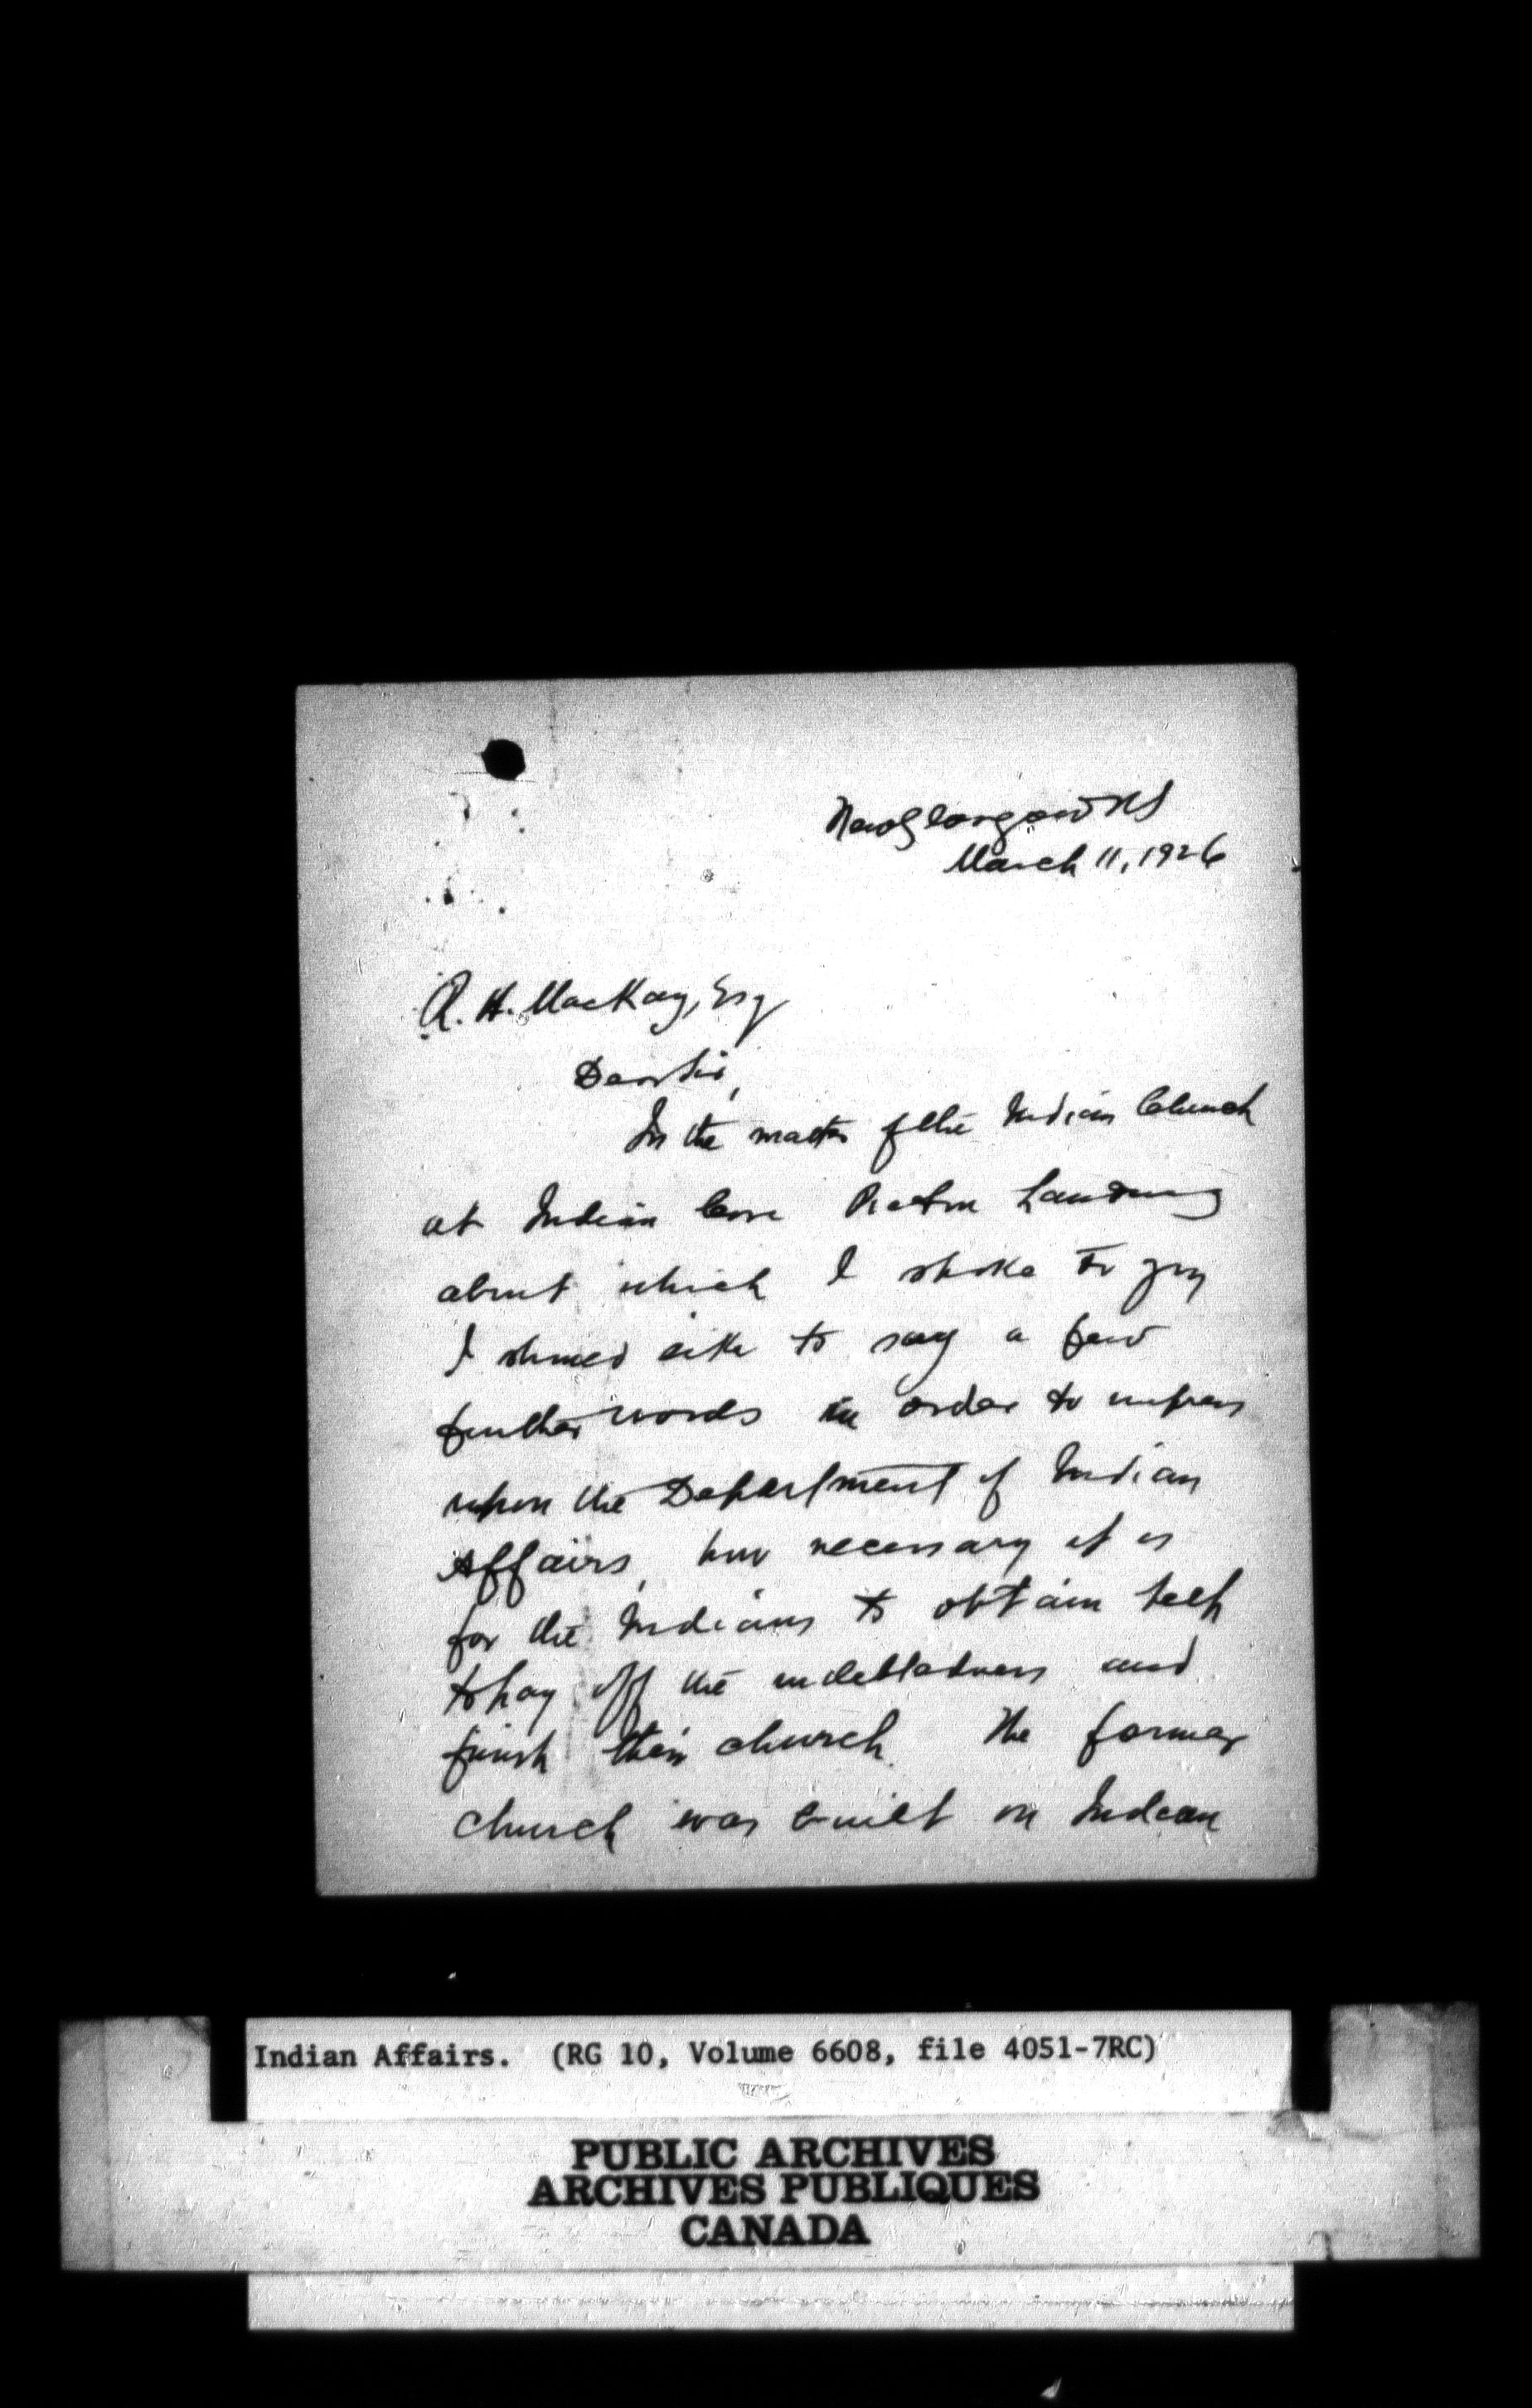 New Glasgow NS
March 11, 1926
R. H. MacKay, Esq
Dear Sir,
In the matter of the Indian Church
at Indian Cove Pictou Landing
about which I spoke to you
I should like to say a few
further words in order to impress
upon the Department of Indian
Affairs, how necessary it is
for the Indians to obtain help
to pay off the indebtedness and
finish their church. The former
church was built on Indian
Indian Affairs. (RG 10, Volume 6608, file 4051-7RC)
PUBLIC ARCHIVES
ARCHIVES PUBLIQUES
CANADA